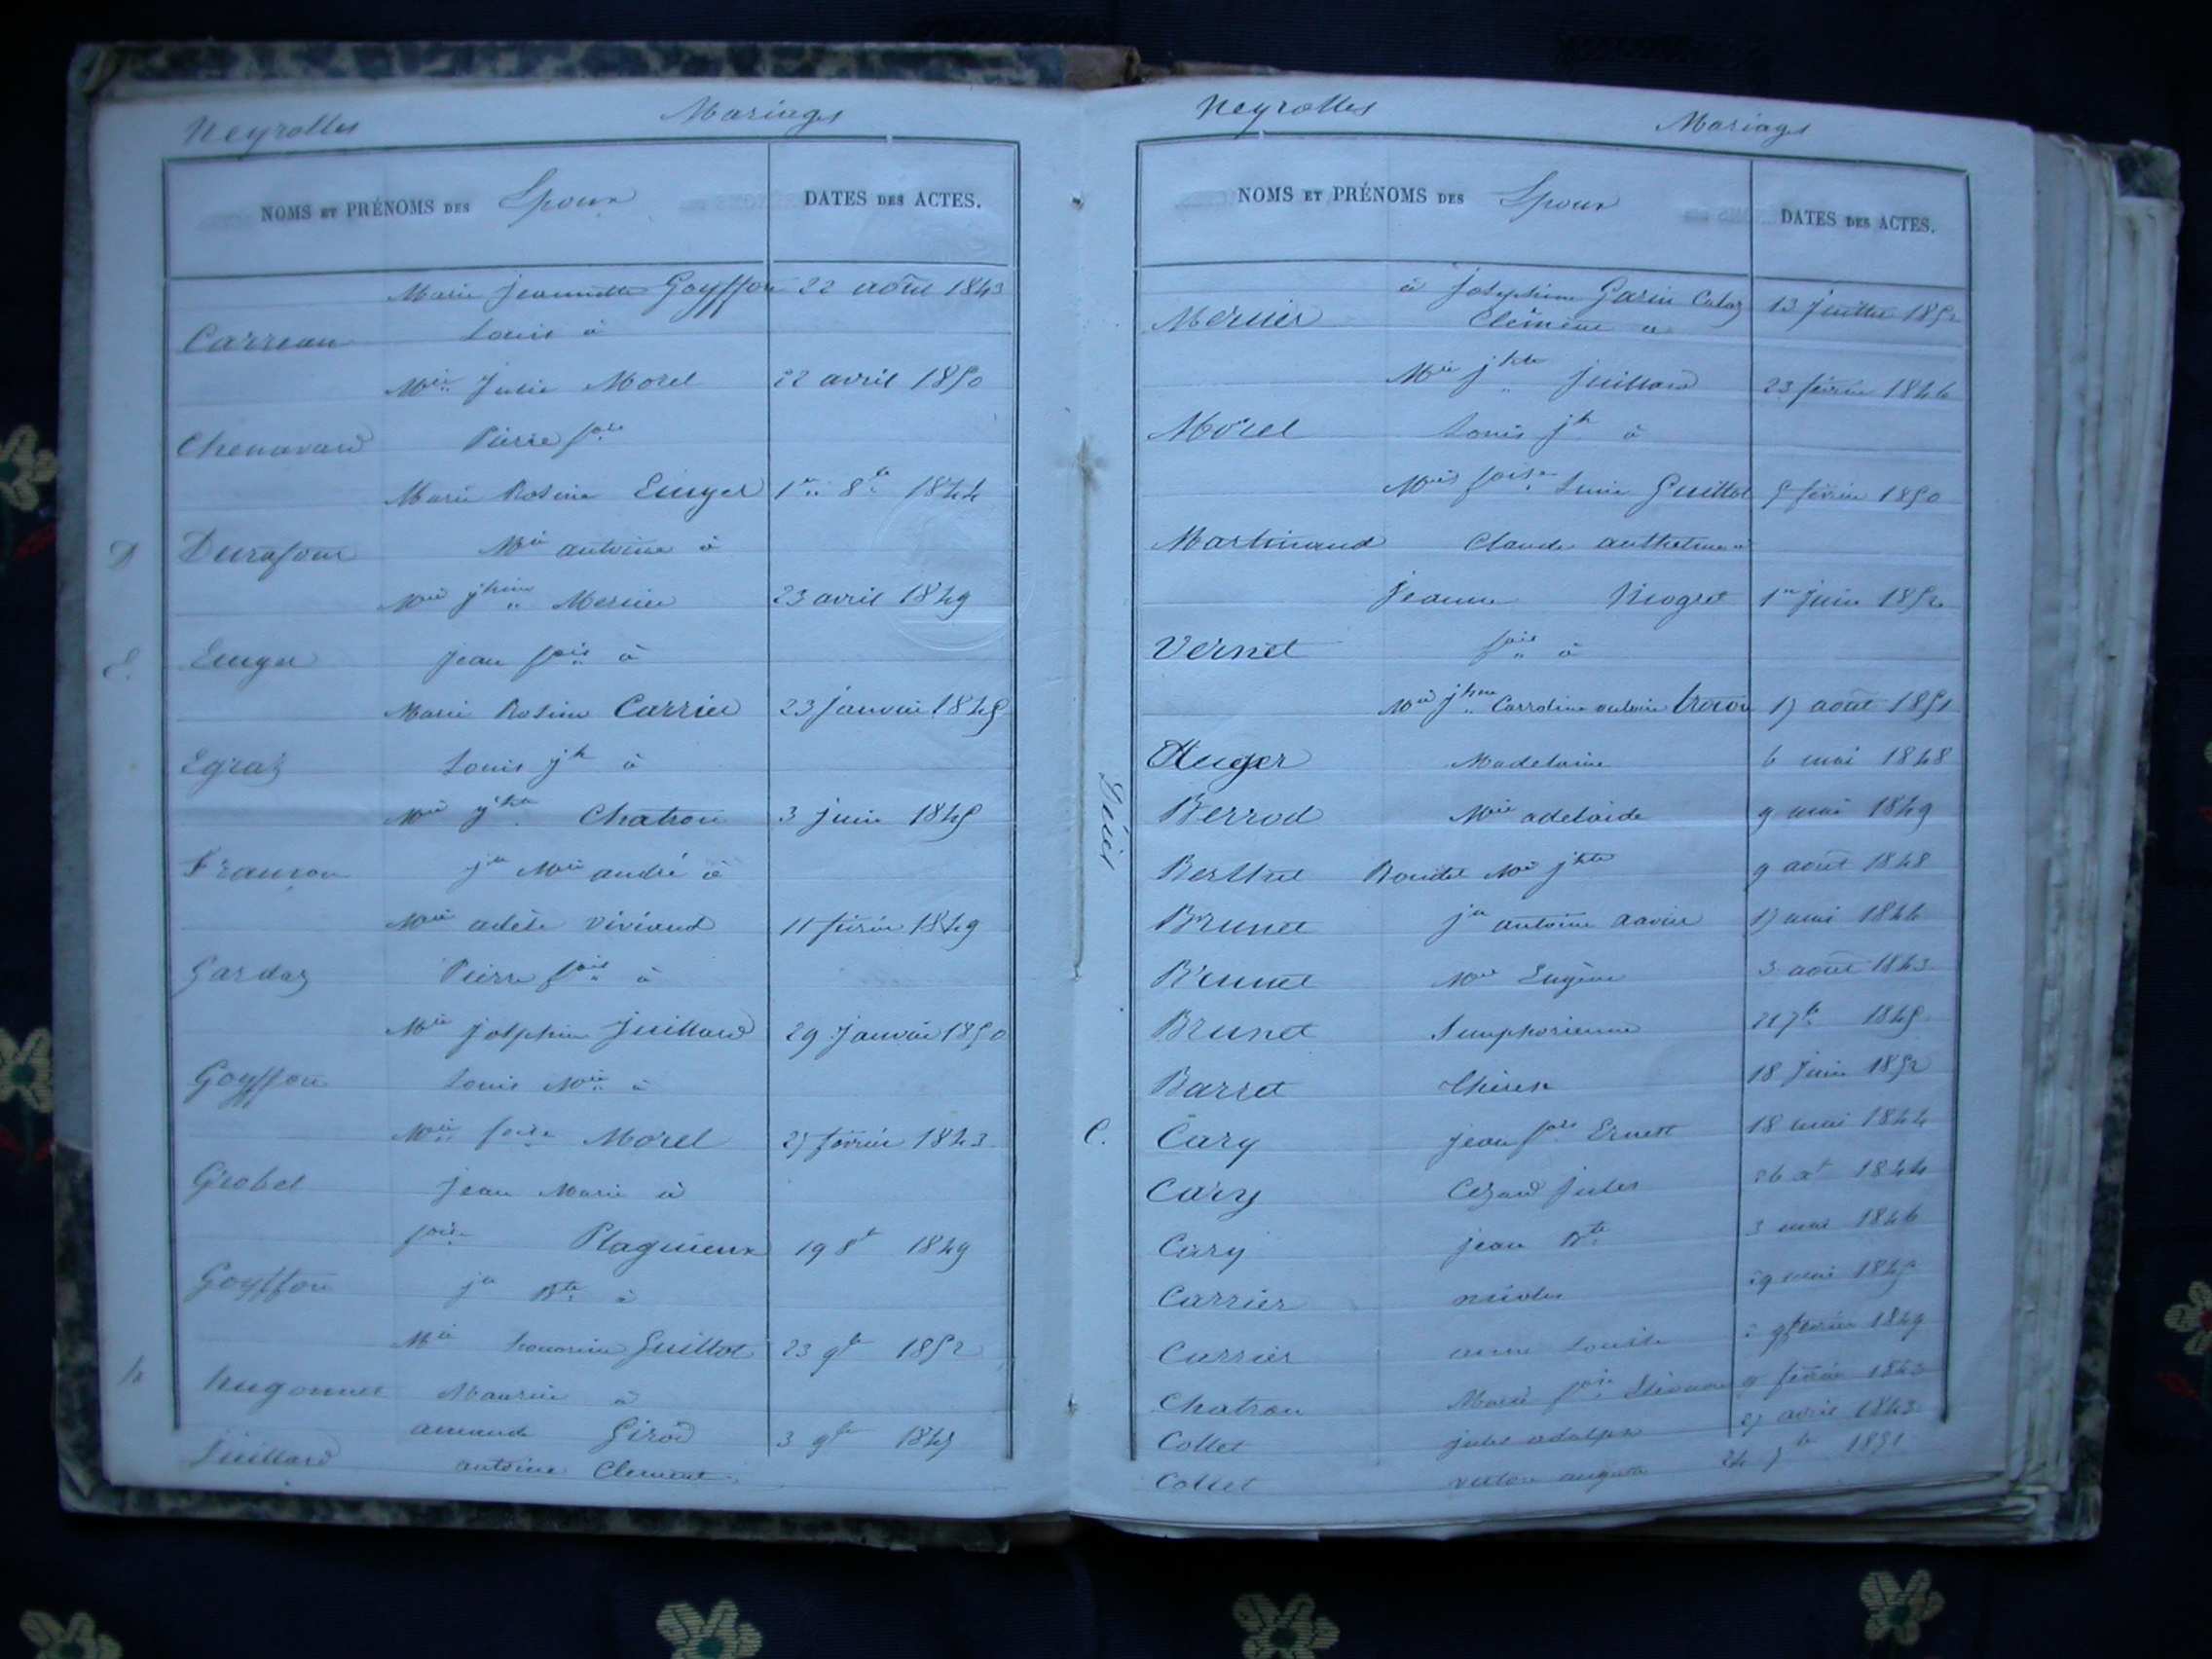 Neyrolles Mariages
NOMS ET PRÉNOMS DES Epoux DATES DES ACTES.
Marie Jeannette Goyffon 22 août 1843
Carreau Louis à
Mie Julie Morel 22 avril 1850
Chenavard Pierre fois
Marie Rosine Emyer 1er 8bre 1844
D Durafour Mie antoine à
Mie jhine Mercier 23 avril 1849
E. Emyer Jean fois à
Marie Rosine Carrier 23 janvier 1845
Egraz Louis jh à
Mie jhte Chatron 3 juin 1845
Franron jn Mie andré à
Mie adèle Viviand 11 février 1849
Gardaz Pierre fois à
Mie Josephine Juillard 29 Janvier 1850
Goyffon Louis Mie à
Mie foise Morel 27 février 1843
Grobel Jean Marie à
foise Plagnieux 19 8bre 1849
Goyffon jn Bte à
Mie honorine Guillot 23 9bre 1852
h hugonnet Maurice à
amande Girod 3 9bre 1845
Juillard antoine Clement
Neyrolles Mariages
NOMS ET PRÉNOMS DES Epoux DATES DES ACTES.
à Josephine Garin Calaz 13 Juillet 1852
Mercier à
Mie jhte Juillard 23 février 1846
Morel Louis jh à
Mie foise Guillot 5 février 1850
Martinand Claude anthelme à
Jeanne Niogret 1er Juin 1852
Vernet fois à
Mie jhine Carroline 17 août 1851
Décès
Auger Madelaine 6 mai 1848
Berrod Mie adelaide 9 mai 1849
Berthet Roudet Mie jhte 9 août 1848
Brunet jn antoine 17 mai 1844
Brunet Mie Eugène 3 août 1843
Brunet Simphorienne 21 7bre 1845
Barret 18 Juin 1852
C. Cary jean fois Ernest 18 mai 1844
Cary Cezard Jules 26 1844
Cary jean Bte 3 mai 1846
Carrier nicolas 29 mai 1845
Carrier anne Louise février 1849
Chatron Marie foise 9 février 1843
Collet jules adolphe 27 avril 1843
Collet 1851